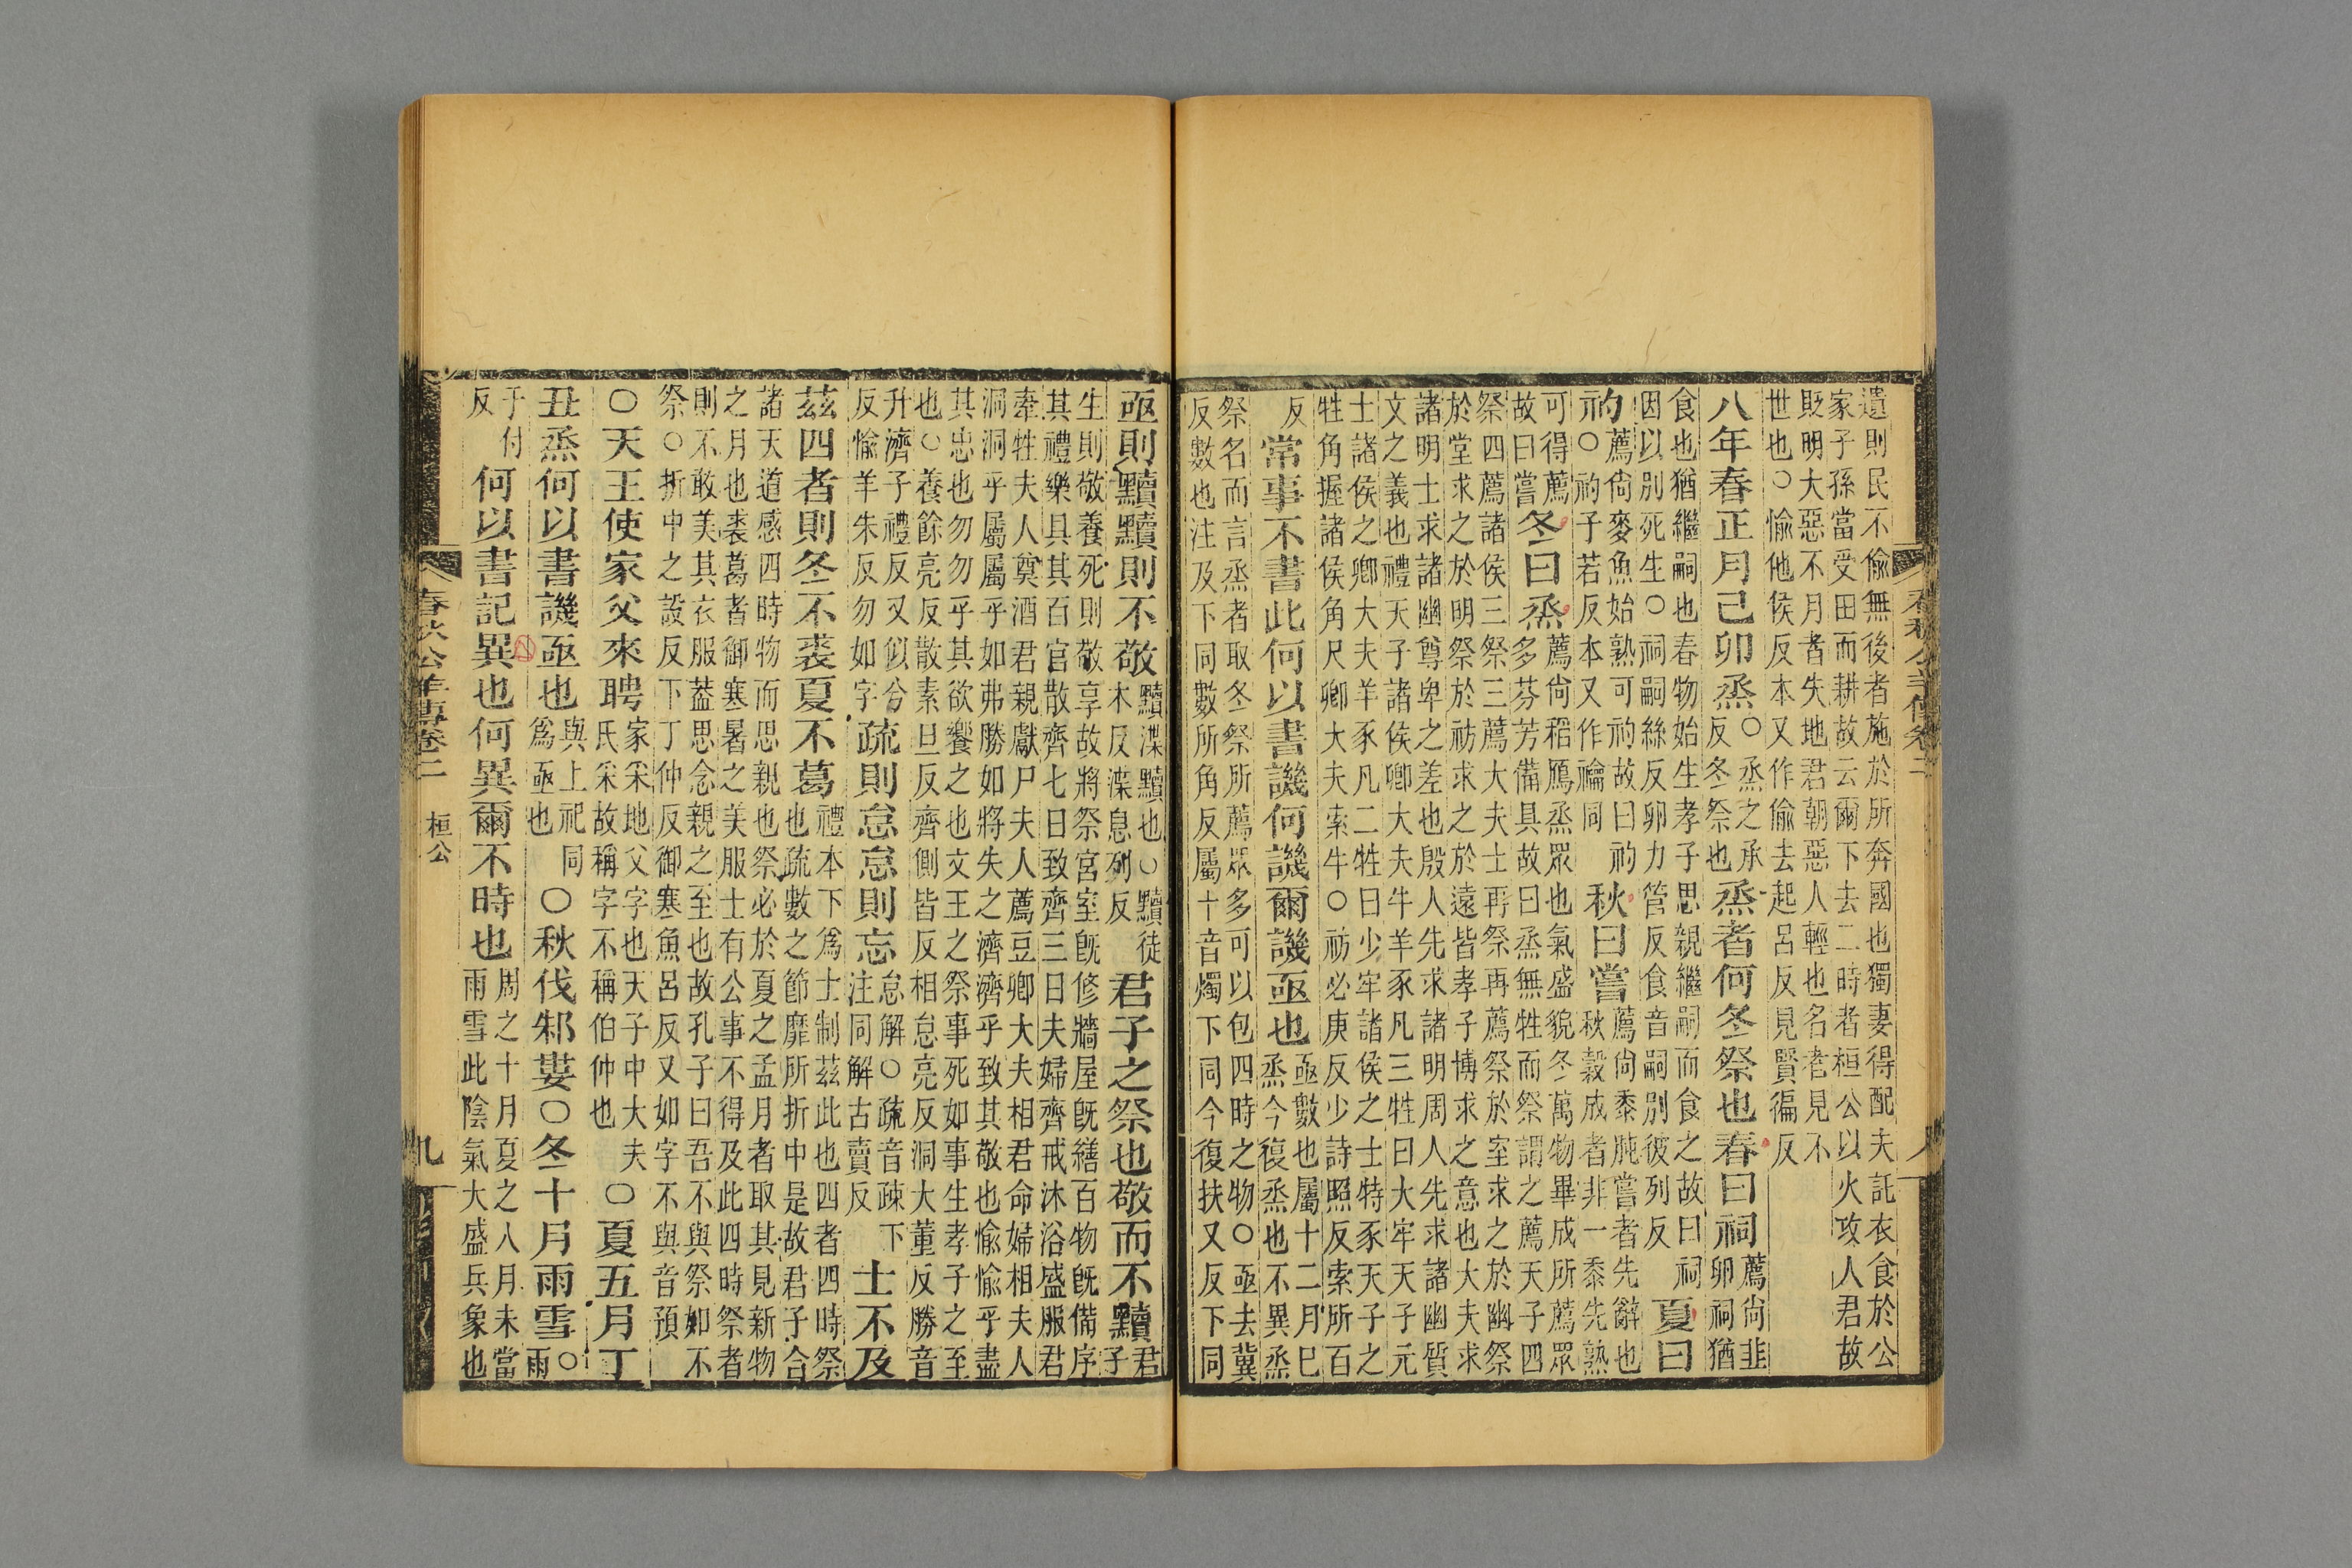 遺則民不偷無後者施於所奔國也獨妻得配夫託衣食於公
家子孫當受田而耕故云爾下去二時者桓公以火攻人君故
貶明大惡不月者失地君朝惡人輕也名者見不
世也○愉他侯反本又作偷去起呂反見賢徧反
八年春正月己卯烝○烝之承反冬祭也烝者何冬祭也春曰祠薦尚韭卵祠猶
食也猶繼嗣也春物始生孝子思親繼嗣而食之故曰祠
因以別死生○祠嗣絲反卵力管反食音嗣別彼列反夏曰
礿薦尚麥魚始熟可礿故曰礿○礿子若反本又作禴同秋曰嘗薦尚黍肫嘗者先辭也秋穀成者非一黍先熟
可得薦故曰嘗冬曰烝薦尚稻鴈烝眾也氣盛貌冬萬物畢成所薦眾多芬芳備具故曰烝無牲而祭謂之薦天子四
祭四薦諸侯三祭三薦大夫士再祭再薦祭於室求之於幽祭
於堂求之於明祭於祊求之於遠皆孝子博求之意也大夫求
諸明士求諸幽尊卑之差也殷人先求諸明周人先求諸幽質
文之義也禮天子諸侯卿大夫牛羊豕凡三牲曰大牢天子元
士諸侯之卿大夫羊豕凡二牲曰少牢諸侯之士特豕天子之
牲角握諸侯角尺卿大夫索牛○祊必庚反少詩照反索所百
反常事不書此何以書譏何譏爾譏亟也亟數也屬十二月巳烝今復烝也不異烝
祭名而言烝者取冬祭所薦眾多可以包四時之物○亟去冀
反數也注及下同數所角反屬十音燭下同今復扶又反下同
亟則黷黷則不敬黷渫黷也○黷徒木反渫息列反君子之祭也敬而不黷君子
生則敬養死則敬享故將祭宮室旣修牆屋旣繕百物旣備序
其禮樂具其百官散齊七日致齊三日夫婦齊戒沐浴盛服君
牽牲夫人奠酒君親獻尸夫人薦豆卿大夫相君命婦相夫人
洞洞乎屬屬乎如弗勝如將失之濟濟乎致其敬也愉愉乎盡
其忠也勿勿乎其欲饗之也文王之祭事死如事生孝子之至
也○養餘亮反散素旦反齊側皆反相怠亮反洞大董反勝音
升濟子禮反又似兮反愉羊朱反勿如字疏則怠怠則忘怠解○疏音疎下注同解古賣反士不及
茲四者則冬不裘夏不葛禮本下爲士制茲此也四者四時祭也疏數之節靡所折中是故君子合
諸天道感四時物而思親也祭必於夏之孟月者取其見新物
之月也裘葛者御寒暑之美服士有公事不得及此四時祭者
則不敢美其衣服蓋思念親之至也故孔子曰吾不與祭如不
祭○折中之設反下丁仲反御寒魚呂反又如字不與音預
○天王使家父來聘家采地父字也天子中大夫氏采故稱字不稱伯仲也○夏五月丁
丑烝何以書譏亟也與上祀同爲亟也○秋伐邾婁○冬十月雨雪○雨
于付反何以書記異也何異爾不時也周之十月夏之八月未當雨雪此陰氣大盛兵象也
春秋公羊傳卷二 桓公 九